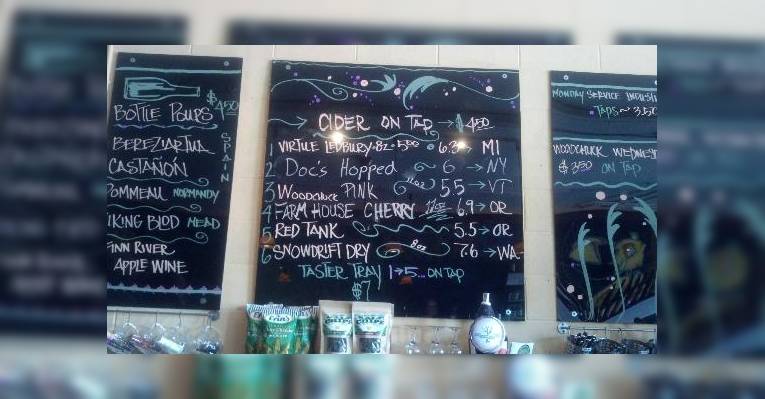 BOTTLE POURS $4.50
BEREZIARTUA
CASTAÑÓN
SPAIN
POMMEAU NORMANDY
VIKING BLOD MEAD
FINN RIVER
APPLE WINE
CIDER ON TAP → $4.50
1 VIRTUE LEDBURY·8z·5.00 6.3 → MI
2 DOC'S HOPPED 6 → NY
3 WOODCHUCK PINK 5.5 → VT
4 FARM HOUSE CHERRY 12oz 6.9 → OR
5 RED TANK 5.5 → OR
6 SNOWDRIFT DRY 8oz 7.6 → WA
TASTER TRAY 1→5... ON TAP
$7
MONDAY SERVICE INDUST
TAPS ~ 3.50
WOODCHUCK WEDNES
$3.50 ON TAP